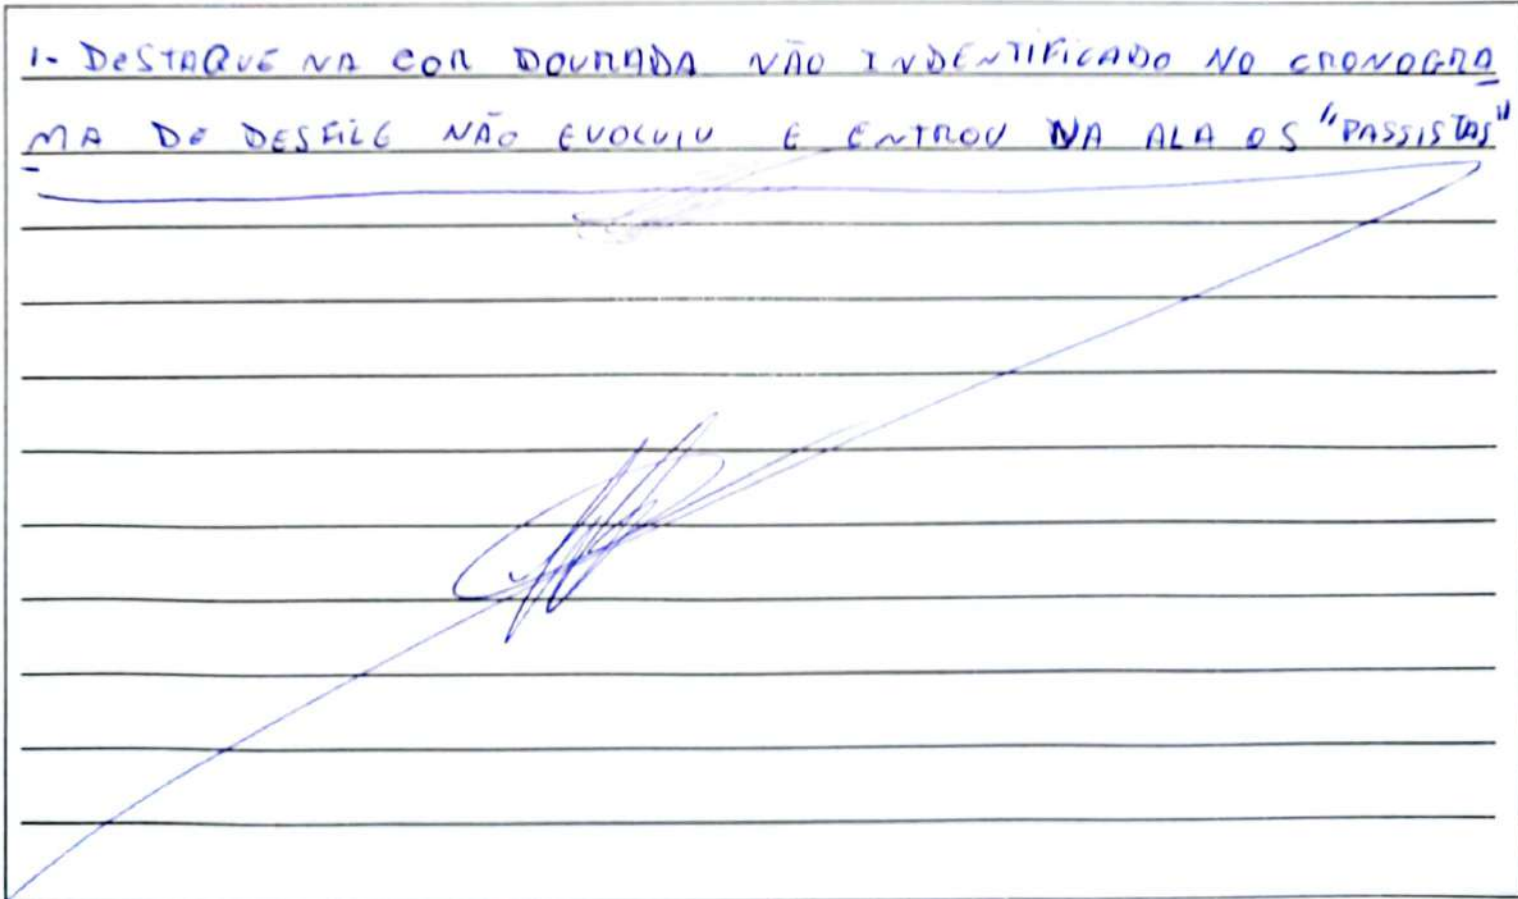 1- DESTAQUE NA COR DOURADA NÃO INDENTIFICADO NO CRONOGRA
MA DE DESFILE NÃO EVOLUIU E ENTROU NA ALA OS "PASSISTAS"